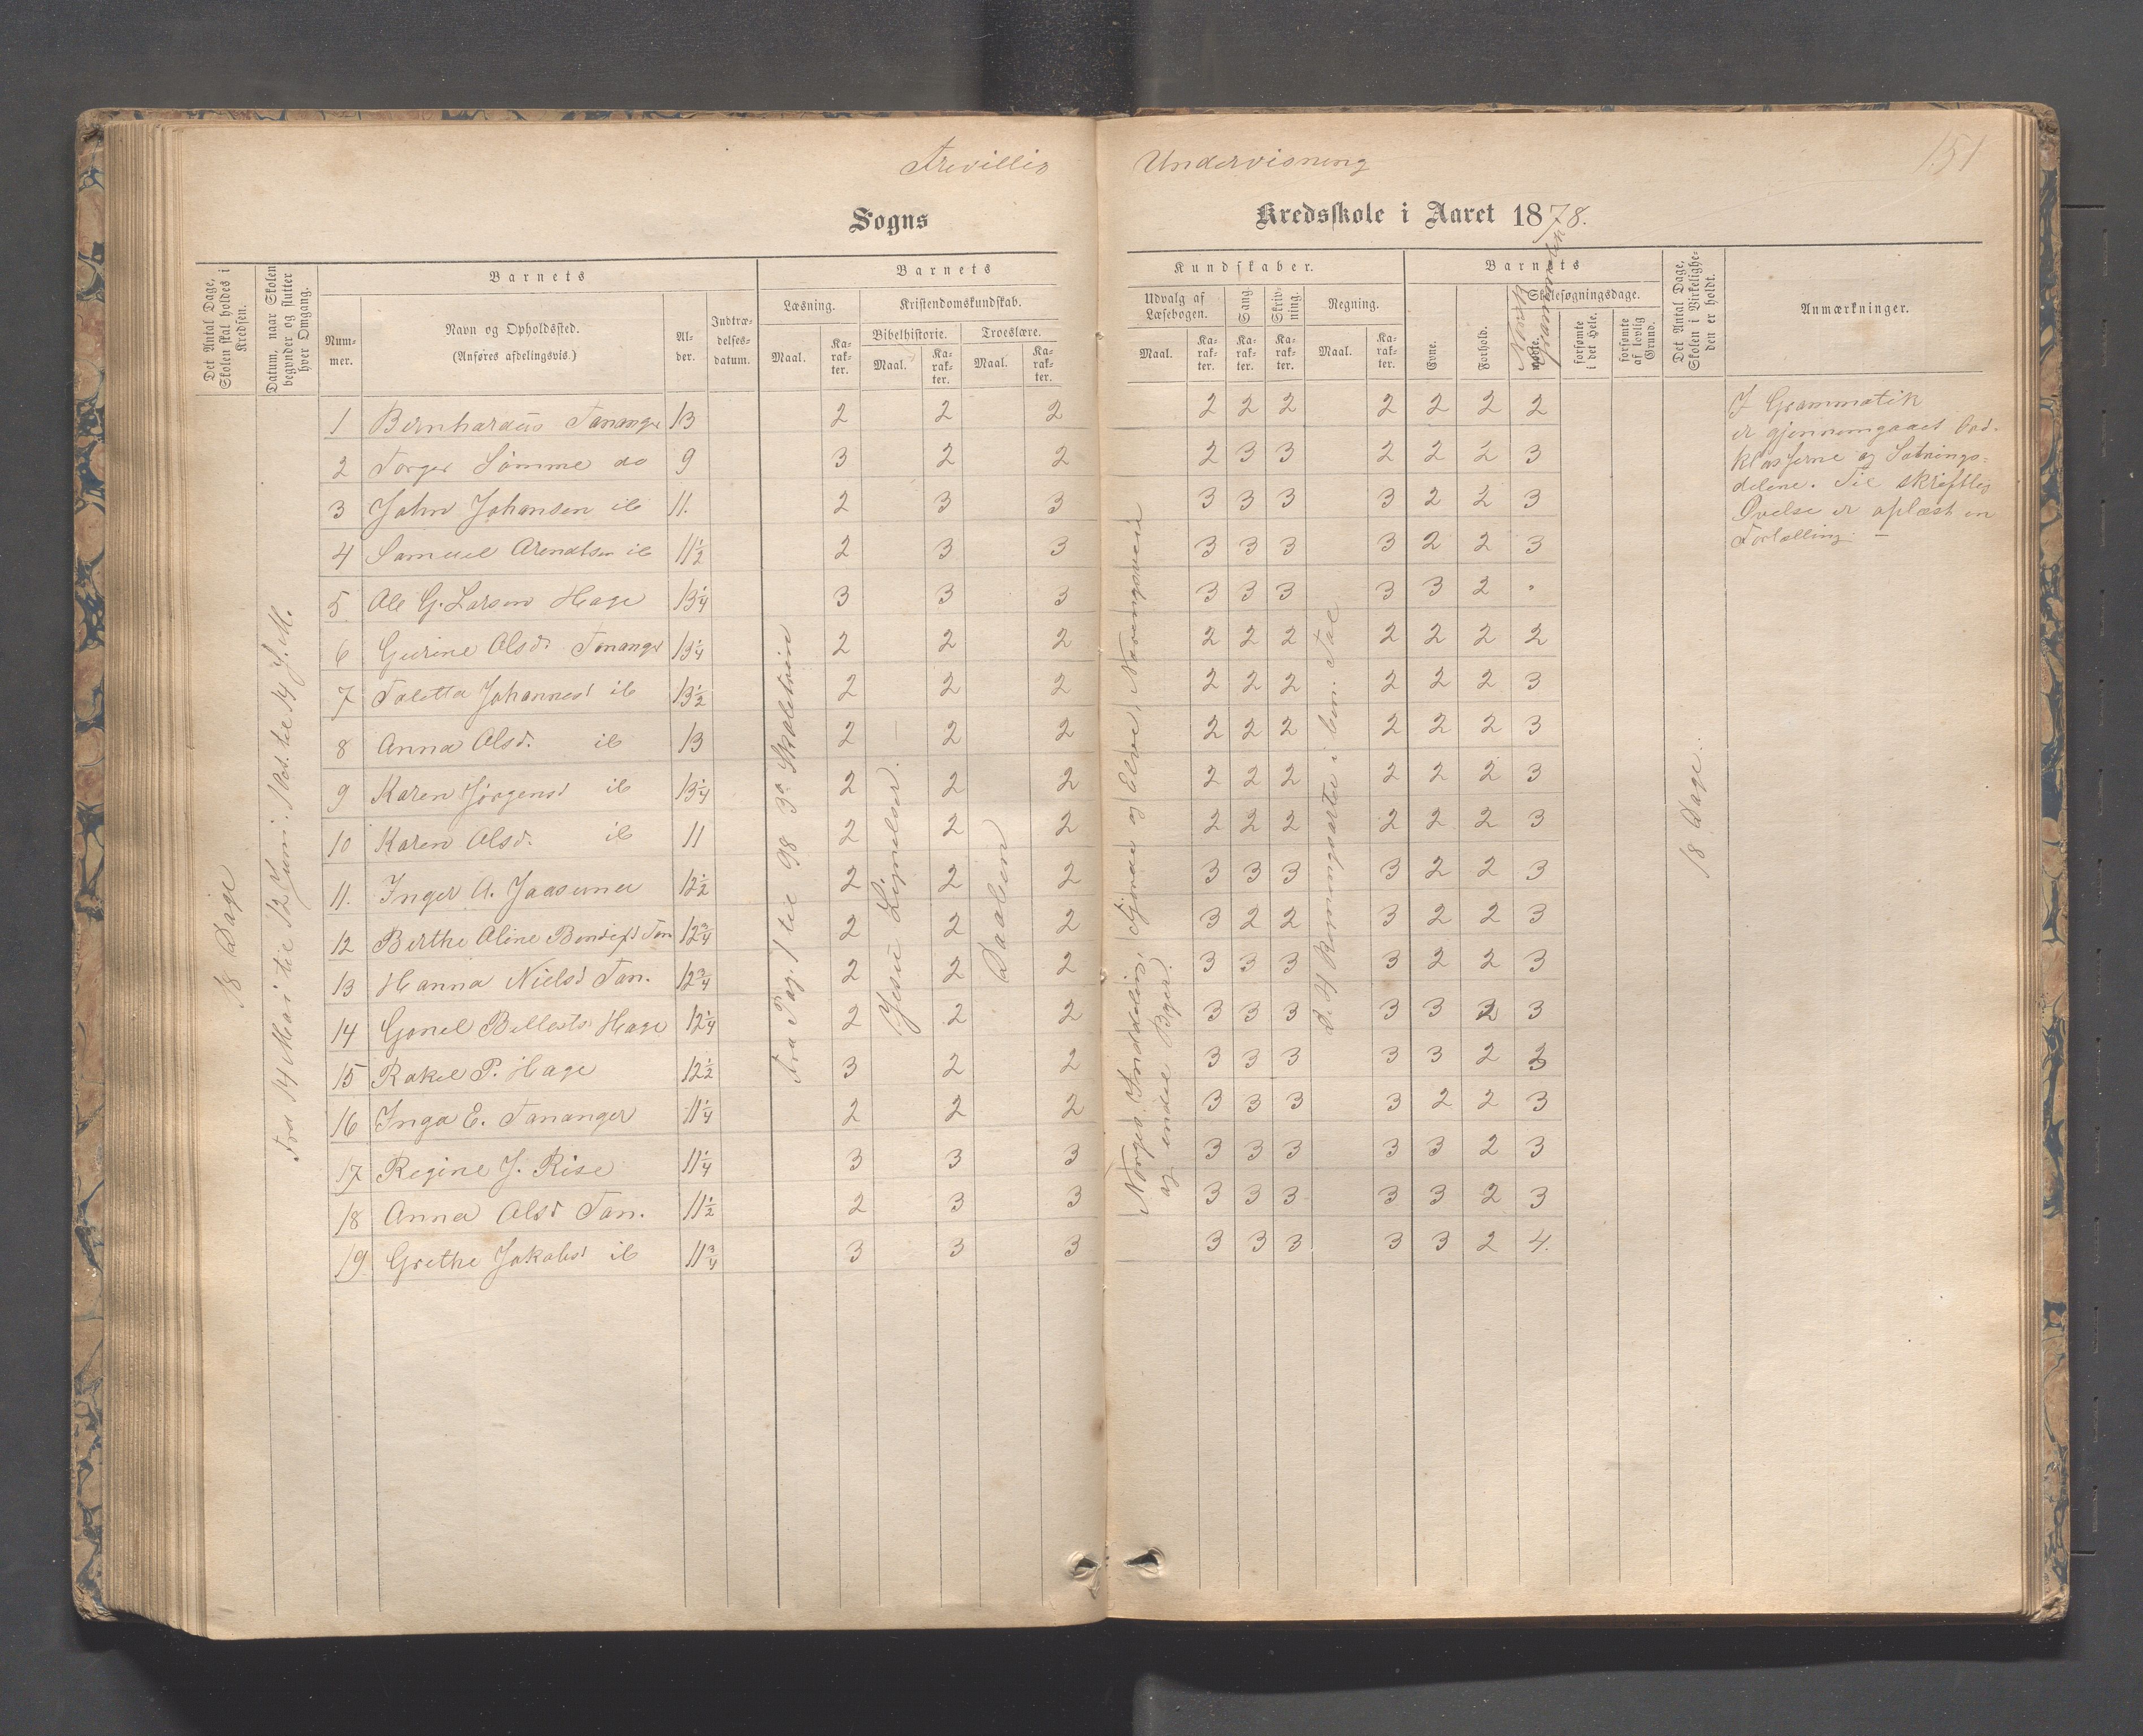 Frivillig Undervisning 151
Sogns Kredsskole i Aaret 1878.
Det Antal Dage, Skolen skal holdes i Kredsen.
Datum, naar Skolen begynder og slutter hver Omgang.
Barnets
Num-mer.
Navn og Opholdssted.
(Anføres afdelingsvis.)
Al-der.
Indtræ-delses-datum.
Barnets
Læsning.
Maal.
Ka-rak-ter.
Kristendomskundskab.
Bibelhistorie.
Maal.
Ka-rak-ter.
Troeslære.
Maal.
Ka-rak-ter.
Kundskaber.
Udvalg af Læsebogen.
Maal.
Ka-rak-ter.
Sang.
Ka-rak-ter.
Skriv-ning.
Ka-rak-ter.
Regning.
Maal.
Ka-rak-ter.
Barnets
Evne.
Forhold.
Skolesøgningsdage.
mødte.
Norsk Grammatik
forsømte i det Hele.
forsømte af lovlig Grund.
Det Antal Dage, Skolen i Virkelighe-den er holdt.
Anmærkninger.
18 Dage
Fra 14 Mai til 12 Juni. 1 Oct. til 14 s. M.
Fra Pag. 1 til 98 3die Skoletrin
Jesu Lignelser.
Daaben
Norges Inddeling, Fjorde og Elve, Næringsveie
og endel Byer.
De 4 Regningsarter i ben. Tal
18 Dage.
1 Bernhardus Tananger 13 2 2 2 2 2 2 2 2 2 2
2 Torger Sømme do 9 3 2 2 2 3 3 2 2 2 3
3 John Johansen ib 11. 2 3 3 3 3 3 3 2 2 3
4 Samuel Arendtsen ib 11½ 2 3 3 3 3 3 3 2 2 3
5 Ole G. Larsen Hage 13¼ 3 3 3 3 3 3 3 3 2 "
6 Gurine Olsd. Tananger 13¼ 2 2 2 2 2 2 2 2 2 2
7 Taletta Johannesd ib 13½ 2 2 2 2 2 2 2 2 2 3
8 Anna Olsd. ib 13 2 2 2 2 2 2 2 2 2 3
9 Karen Jørgensd ib 13¼ 2 2 2 2 2 2 2 2 2 3
10 Karen Olsd. ib 11 2 2 2 2 2 2 2 2 2 3
11. Inger A. Jaasund 12½ 2 2 2 3 3 3 3 2 2 3
12 Berthe Oline Tan 12¾ 2 2 2 3 2 2 3 2 2 3
13 Hanna Nielsd Tan. 12¾ 2 2 2 3 3 3 3 2 2 3
14 Gonel Hage 12¼ 2 2 2 3 3 3 3 3 2 3
15 Rakel P. Hage 12½ 3 2 2 3 3 3 3 3 2 3
16 Inga E. Tananger 11¼ 2 2 2 3 3 3 3 2 2 3
17 Regine J. Rise 11¼ 3 3 3 3 3 3 3 3 2 3
18 Anna Olsd Tan. 11½ 2 3 3 3 3 3 3 3 2 3
19 Grethe Jakobsd ib 11¾ 3 3 3 3 3 3 3 3 2 4.
I Grammatik
er gjennemgaaet Ord-
klasserne og Sætnings-
delene. Til skriftlig
Øvelse er oplæst en
Fortælling. —